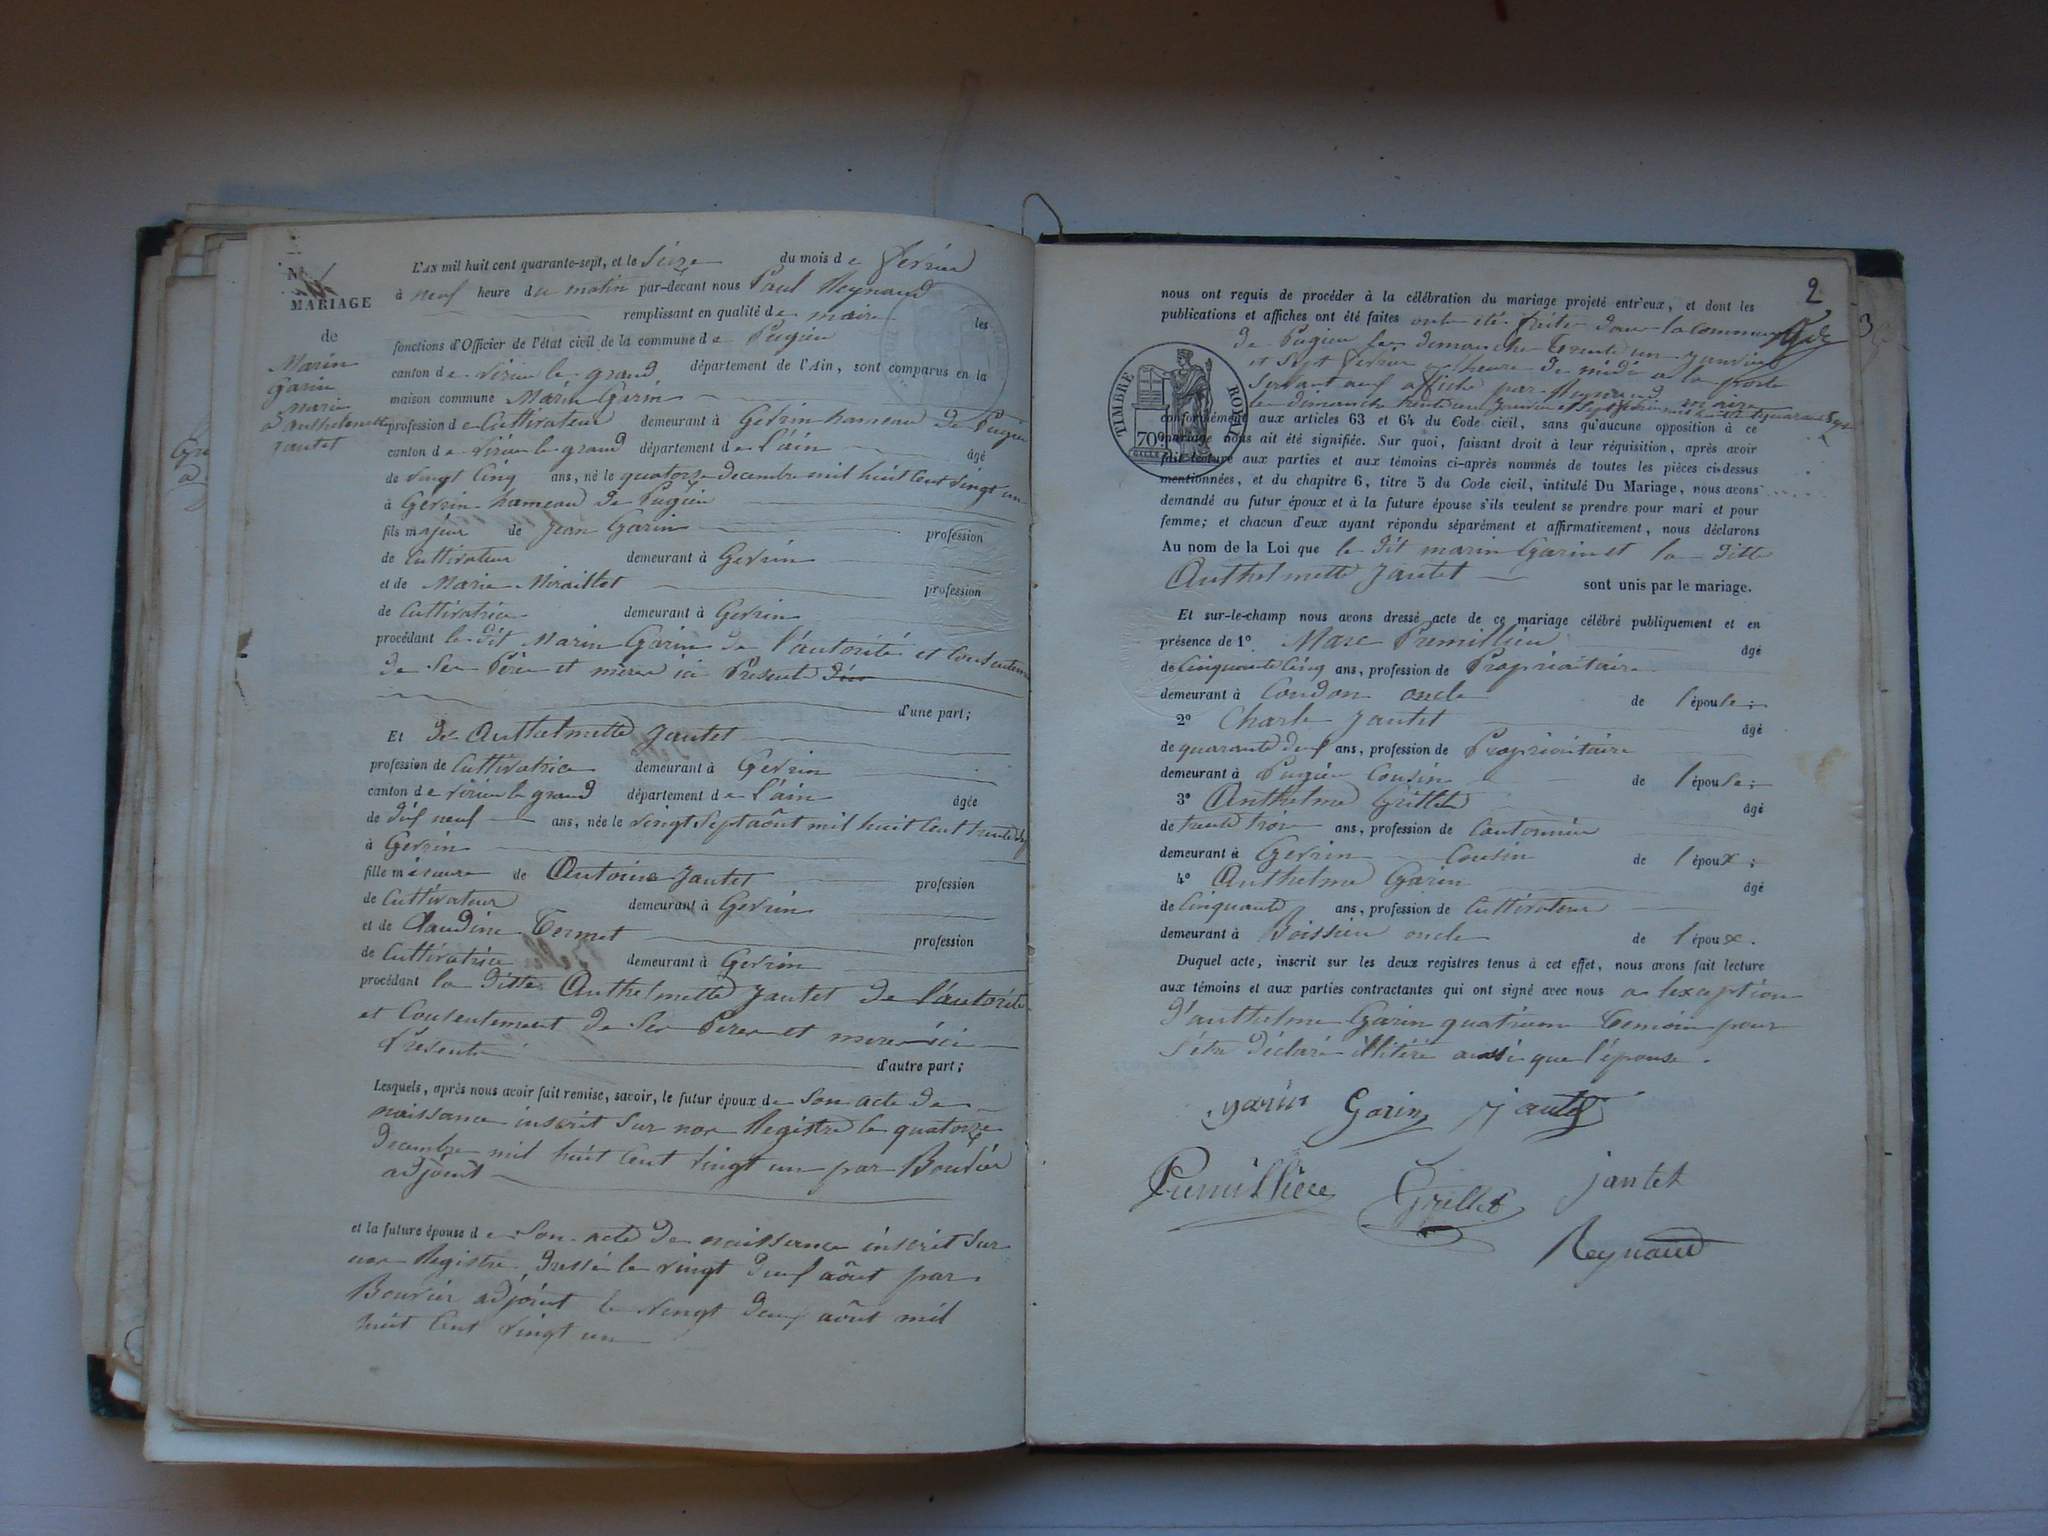 N° 1
MARIAGE
de
Marin
Garin
marié
à anthelmette
jantet
L'AN mil huit cent quarante-sept, et le Seize du mois de fevrier
à neuf heure du matin par-devant nous Paul Reynaud
remplissant en qualité de maire les
fonctions d'Officier de l'état civil de la commune de Pugieu
canton de virieu le grand département de l'Ain, sont comparus en la
maison commune Marin Garin
profession de Cultivateur demeurant à Gevrin hameau de Pugieu
canton de virieu le grand département de l'ain âgé
de vingt Cinq ans, né le quatorze decembre mil huit Cent vingt un
à Gevrin hameau de Pugieu
fils majeur de jean Garin profession
de Cultivateur demeurant à Gevrin
et de Marie Miraillet profession
de Cultivatrice demeurant à Gevrin
procédant le dit Marin Garin de l'autorité et Consentem
de Ses Père et mere ici Present
d'une part;
Et de Anthelmette Jantet
profession de Cultivatrice demeurant à Gevrin
canton de virieu le grand département de l'ain âgée
de dix neuf ans, née le vingt Sept août mil huit Cent
à Gevrin
fille mineure de Antoine Jantet profession
de Cultivateur demeurant à Gevrin
et de Claudine Termet profession
de Cultivatrice demeurant à Gevrin
procédant la ditte Anthelmette Jantet de l'autorité
et Consentement de Ses Pere et mere ici
Present
d'autre part;
Lesquels, après nous avoir fait remise, savoir, le futur époux de Son acte de
naissance inscrit Sur nos Registre le quatorze
decembre mil huit Cent vingt un par Bouvier
adjoint
et la future épouse de Son acte de naissance inscrit Sur
nos Registre dressé le vingt août par
Bouvier adjoint le vingt août mil
huit Cent vingt un
2
nous ont requis de procéder à la célébration du mariage projeté entr'eux, et dont les
publications et affiches ont été faites ont été faite dans la commune
de Pugieu les dimanche trente un janvier
et Sept fevrier a lheure de midi a la porte
Servant aux affiche par Reynaud maire
le dimanche trente un janvier et Sept fevrier mil huit Cent quarante Sept
conformément aux articles 63 et 64 du Code civil, sans qu'aucune opposition à ce
mariage nous ait été signifiée. Sur quoi, faisant droit à leur réquisition, après avoir
fait lecture aux parties et aux témoins ci-après nommés de toutes les pièces ci-dessus
mentionnées, et du chapitre 6, titre 5 du Code civil, intitulé Du Mariage, nous avons
demandé au futur époux et à la future épouse s'ils veulent se prendre pour mari et pour
femme; et chacun d'eux ayant répondu séparément et affirmativement, nous déclarons
Au nom de la Loi que le dit marin Garin et la ditte
Anthelmette Jantet sont unis par le mariage.
TIMBRE ROYAL
70c
Et sur-le-champ nous avons dressé acte de ce mariage célébré publiquement et en
présence de 1° Marc Premillieu âgé
de Cinquante Cinq ans, profession de Propriétaire
demeurant à Coudon oncle de l'épouse;
2° Charle Jantet âgé
de quarante deux ans, profession de Propriétaire
demeurant à Pugieu Cousin de l'épouse;
3° Anthelme Grillet âgé
de trente trois ans, profession de Cantonnier
demeurant à Gevrin Cousin de l'époux;
4° Anthelme Garin âgé
de Cinquante ans, profession de Cultivateur
demeurant à Boissieu oncle de l'époux.
Duquel acte, inscrit sur les deux registres tenus à cet effet, nous avons fait lecture
aux témoins et aux parties contractantes qui ont signé avec nous a lexception
d'anthelme Garin quatrieme temoin pour
s'etre déclaré illitéré aussi que l'épouse.
garin Garin jantet
Premillieu Grillet jantet
Reynaud
3